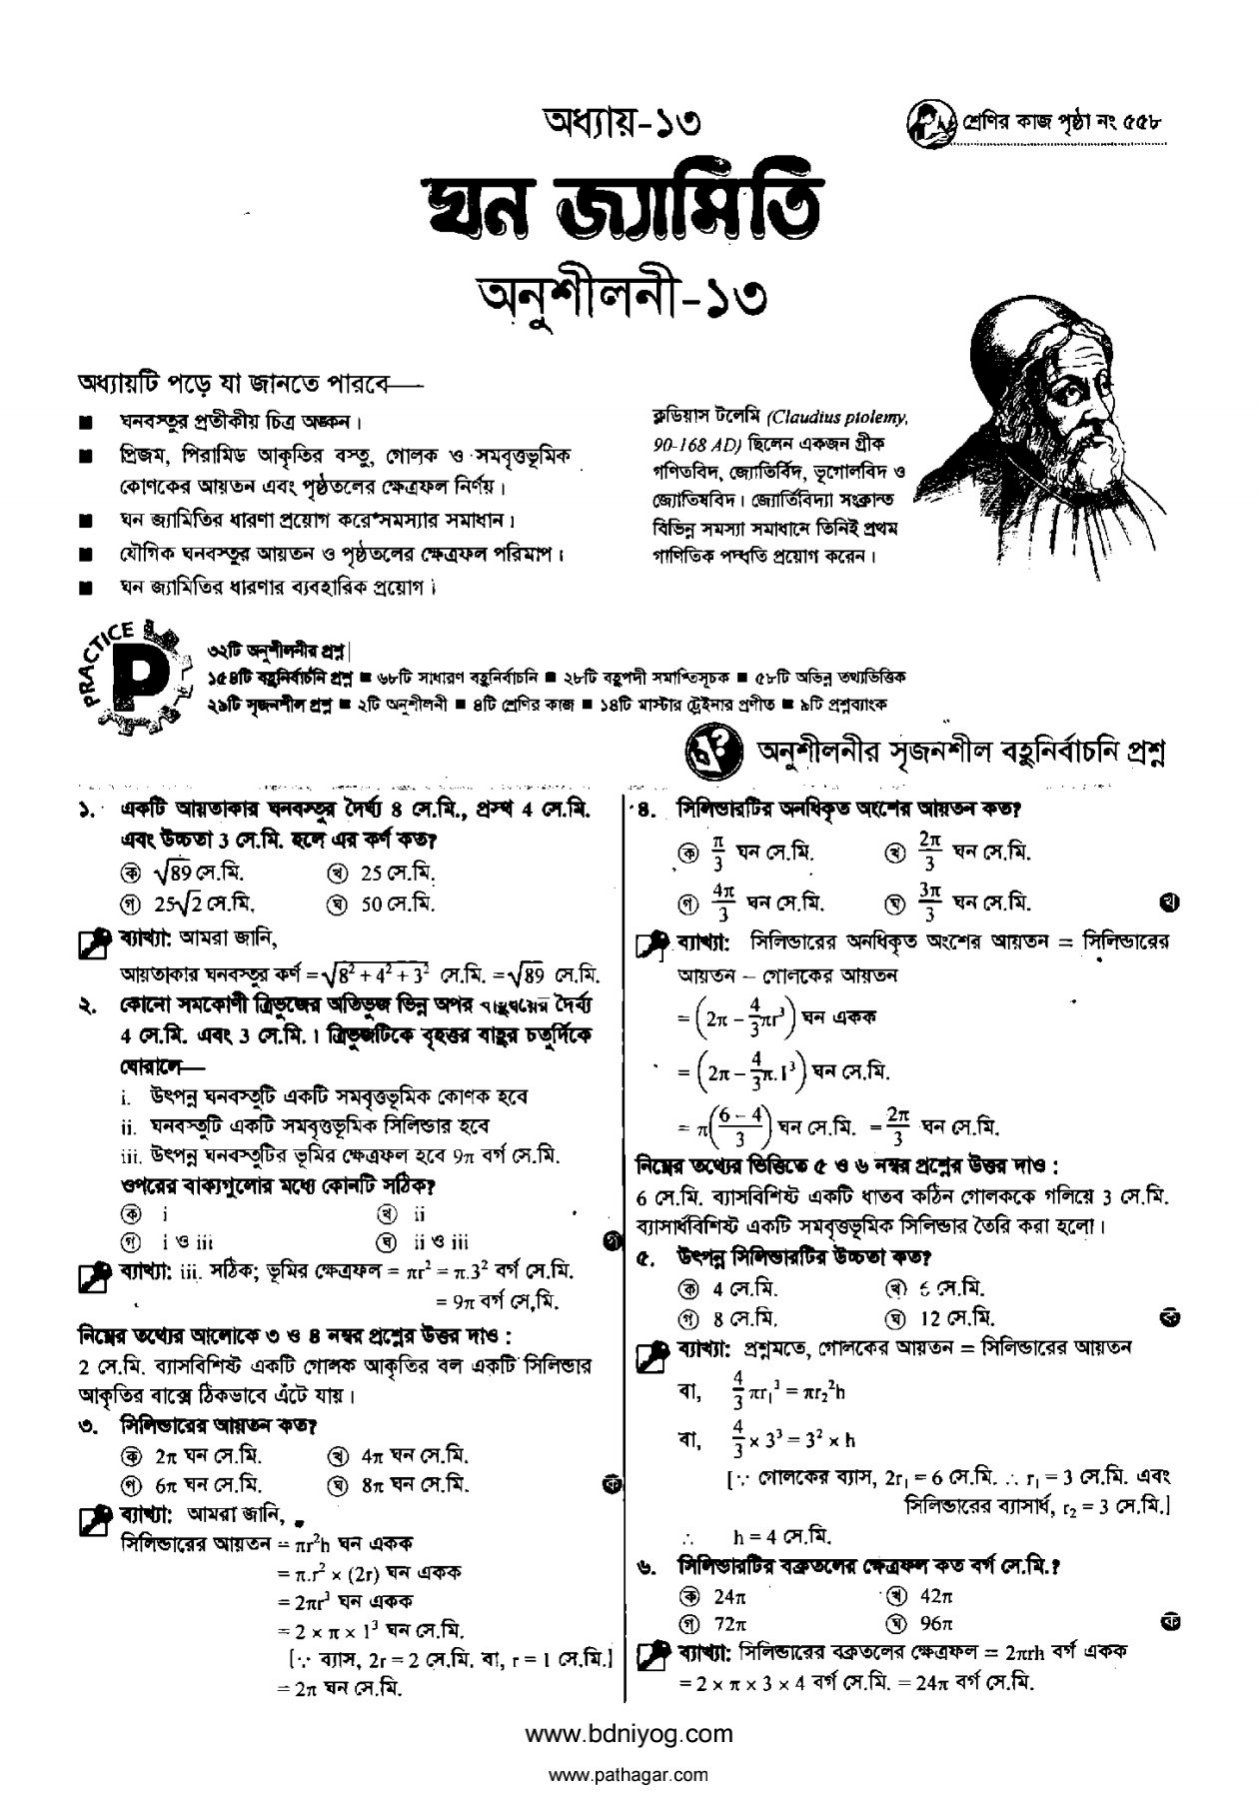 অধ্যায়-১৩
শ্রেণির কাজ পৃষ্ঠা নং ৫৫৮
ঘন জ্যামিতি
অনুশীলনী-১৩
অধ্যায়টি পড়ে যা জানতে পারবে—
■ ঘনবস্তুর প্রতীকীয় চিত্র অঙ্কন।
■ প্রিজম, পিরামিড আকৃতির বস্তু, গোলক ও সমবৃত্তভূমিক
কোণকের আয়তন এবং পৃষ্ঠতলের ক্ষেত্রফল নির্ণয়।
■ ঘন জ্যামিতির ধারণা প্রয়োগ করে সমস্যার সমাধান।
■ যৌগিক ঘনবস্তুর আয়তন ও পৃষ্ঠতলের ক্ষেত্রফল পরিমাপ।
■ ঘন জ্যামিতির ধারণার ব্যবহারিক প্রয়োগ।
ক্লডিয়াস টলেমি (Claudius ptolemy,
90-168 AD) ছিলেন একজন গ্রীক
গণিতবিদ, জ্যোতির্বিদ, ভূগোলবিদ ও
জ্যোতিষবিদ। জ্যোর্তিবিদ্যা সংক্রান্ত
বিভিন্ন সমস্যা সমাধানে তিনিই প্রথম
গাণিতিক পদ্ধতি প্রয়োগ করেন।
PRACTICE
P
৩২টি অনুশীলনীর প্রশ্ন
১৫৪টি বহুনির্বাচনি প্রশ্ন ■ ৬৮টি সাধারণ বহুনির্বাচনি ■ ২৮টি বহুপদী সমাপ্তিসূচক ■ ৫৮টি অভিন্ন তথ্যভিত্তিক
২৯টি সৃজনশীল প্রশ্ন ■ ২টি অনুশীলনী ■ ৪টি শ্রেণির কাজ ■ ১৪টি মাস্টার ট্রেইনার প্রণীত ■ ৯টি প্রশ্নব্যাংক
অনুশীলনীর সৃজনশীল বহুনির্বাচনি প্রশ্ন
১. একটি আয়তাকার ঘনবস্তুর দৈর্ঘ্য 8 সে.মি., প্রস্থ 4 সে.মি.
এবং উচ্চতা 3 সে.মি. হলে এর কর্ণ কত?
ক √89 সে.মি. খ 25 সে.মি.
গ 25√2 সে.মি. ঘ 50 সে.মি.
ব্যাখ্যা: আমরা জানি,
আয়তাকার ঘনবস্তুর কর্ণ = √8² + 4² + 3² সে.মি. = √89 সে.মি.
২. কোনো সমকোণী ত্রিভুজের অতিভুজ ভিন্ন অপর বাহুদ্বয়ের দৈর্ঘ্য
4 সে.মি. এবং 3 সে.মি.। ত্রিভুজটিকে বৃহত্তর বাহুর চতুর্দিকে
ঘোরালে—
i. উৎপন্ন ঘনবস্তুটি একটি সমবৃত্তভূমিক কোণক হবে
ii. ঘনবস্তুটি একটি সমবৃত্তভূমিক সিলিন্ডার হবে
iii. উৎপন্ন ঘনবস্তুটির ভূমির ক্ষেত্রফল হবে 9π বর্গ সে.মি.
ওপরের বাক্যগুলোর মধ্যে কোনটি সঠিক?
ক i খ ii
গ i ও iii ঘ ii ও iii গ
ব্যাখ্যা: iii. সঠিক; ভূমির ক্ষেত্রফল = πr² = π.3² বর্গ সে.মি.
= 9π বর্গ সে.মি.
নিম্নের তথ্যের আলোকে ৩ ও ৪ নম্বর প্রশ্নের উত্তর দাও :
2 সে.মি. ব্যাসবিশিষ্ট একটি গোলক আকৃতির বল একটি সিলিন্ডার
আকৃতির বাক্সে ঠিকভাবে এঁটে যায়।
৩. সিলিন্ডারের আয়তন কত?
ক 2π ঘন সে.মি. খ 4π ঘন সে.মি.
গ 6π ঘন সে.মি. ঘ 8π ঘন সে.মি. ক
ব্যাখ্যা: আমরা জানি,
সিলিন্ডারের আয়তন = πr²h ঘন একক
= π.r² × (2r) ঘন একক
= 2πr³ ঘন একক
= 2 × π × 1³ ঘন সে.মি.
[∵ ব্যাস, 2r = 2 সে.মি. বা, r = 1 সে.মি.]
= 2π ঘন সে.মি.
৪. সিলিন্ডারটির অনধিকৃত অংশের আয়তন কত?
ক π/3 ঘন সে.মি. খ 2π/3 ঘন সে.মি.
গ 4π/3 ঘন সে.মি. ঘ 3π/3 ঘন সে.মি. খ
ব্যাখ্যা: সিলিন্ডারের অনধিকৃত অংশের আয়তন = সিলিন্ডারের
আয়তন – গোলকের আয়তন
= (2π – 4/3 πr³) ঘন একক
= (2π – 4/3 π.1³) ঘন সে.মি.
= π((6 – 4)/3) ঘন সে.মি. = 2π/3 ঘন সে.মি.
নিম্নের তথ্যের ভিত্তিতে ৫ ও ৬ নম্বর প্রশ্নের উত্তর দাও :
6 সে.মি. ব্যাসবিশিষ্ট একটি ধাতব কঠিন গোলককে গলিয়ে 3 সে.মি.
ব্যাসার্ধবিশিষ্ট একটি সমবৃত্তভূমিক সিলিন্ডার তৈরি করা হলো।
৫. উৎপন্ন সিলিন্ডারটির উচ্চতা কত?
ক 4 সে.মি. খ 6 সে.মি.
গ 8 সে.মি. ঘ 12 সে.মি. ক
ব্যাখ্যা: প্রশ্নমতে, গোলকের আয়তন = সিলিন্ডারের আয়তন
বা, 4/3 πr₁³ = πr₂²h
বা, 4/3 × 3³ = 3² × h
[∵ গোলকের ব্যাস, 2r₁ = 6 সে.মি. ∴ r₁ = 3 সে.মি. এবং
সিলিন্ডারের ব্যাসার্ধ, r₂ = 3 সে.মি.]
∴ h = 4 সে.মি.
৬. সিলিন্ডারটির বক্রতলের ক্ষেত্রফল কত বর্গ সে.মি.?
ক 24π খ 42π
গ 72π ঘ 96π ক
ব্যাখ্যা: সিলিন্ডারের বক্রতলের ক্ষেত্রফল = 2πrh বর্গ একক
= 2 × π × 3 × 4 বর্গ সে.মি. = 24π বর্গ সে.মি.
www.bdniyog.com
www.pathagar.com